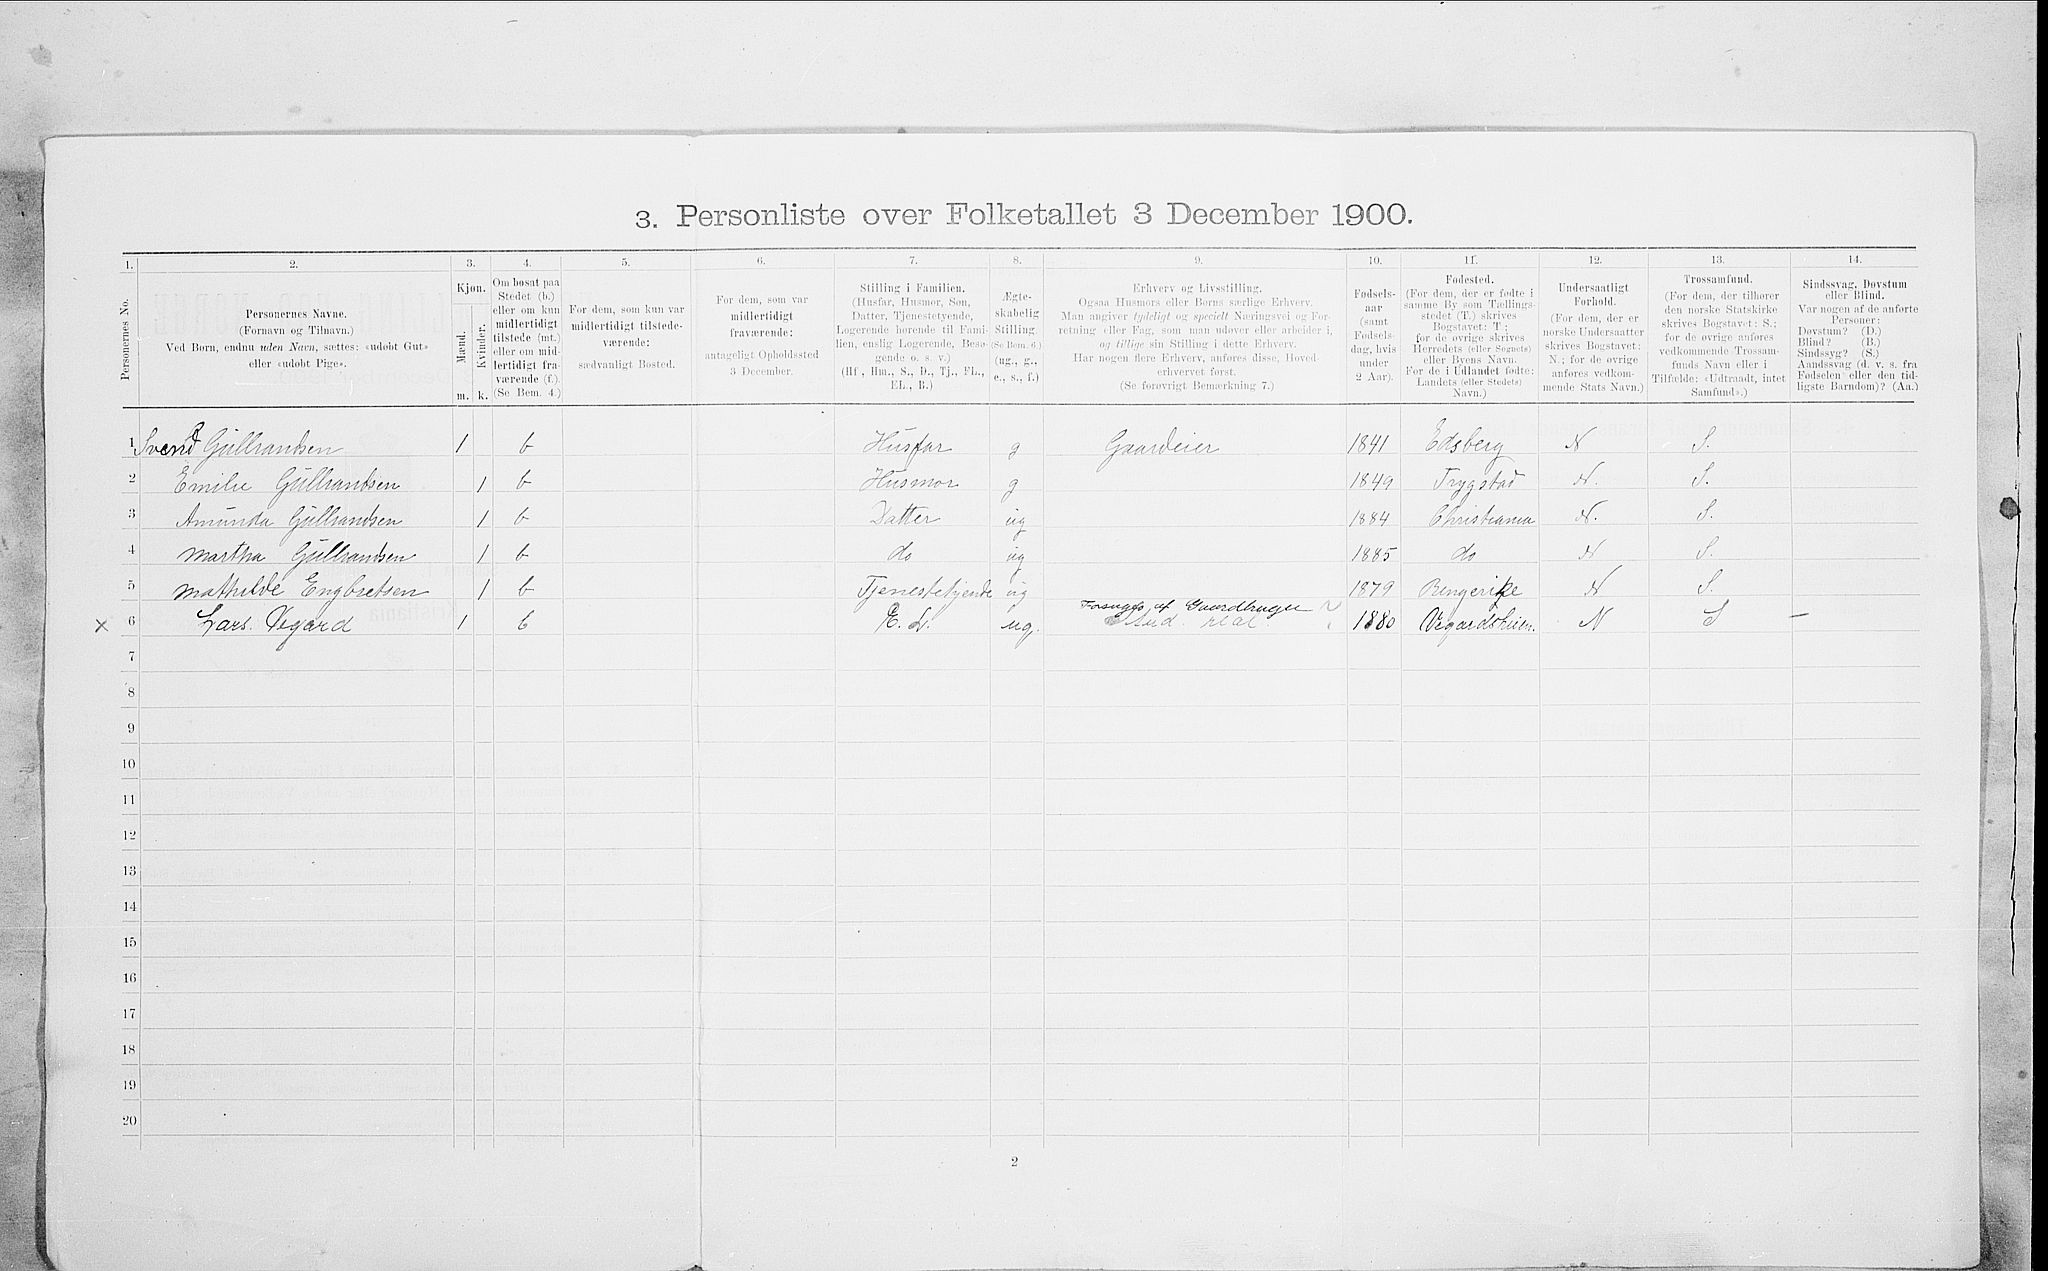 3. Personliste over Folketallet 3 December 1900.
1. 2. 3. 4. 5. 6. 7. 8. 9. 10. 11. 12. 13. 14.
Personernes No.
Personernes Navne.
(Fornavn og Tilnavn.)
Ved Børn, endnu uden Navn, sættes: «udøbt Gut»
eller «udøbt Pige».
Kjøn.
Mænd.
Kvinder.
m. k.
Om bosat paa
Stedet (b.)
eller om kun
midlertidigt
tilstede (mt.)
eller om mid-
lertidigt fra-
værende (f.).
(Se Bem. 4.)
For dem, som kun var
midlertidigt tilstede-
værende:
sædvanligt Bosted.
For dem, som var
midlertidigt
fraværende:
antageligt Opholdssted
3 December.
Stilling i Familien.
(Husfar, Husmor, Søn,
Datter, Tjenestetyende,
Logerende hørende til Fami-
lien, enslig Logerende, Besø-
gende o. s. v.)
(Hf., Hm., S., D., Tj., FL.,
EL., B.)
Ægte-
skabelig
Stilling.
(Se Bem. 6.)
(ug., g.,
e., s., f.)
Erhverv og Livsstilling.
Ogsaa Husmors eller Børns særlige Erhverv.
Man angiver tydeligt og specielt Næringsvei og For-
retning eller Fag, som man udøver eller arbeider i,
og tillige sin Stilling i dette Erhverv.
Har nogen flere Erhverv, anføres disse, Hoved-
erhvervet først.
(Se forøvrigt Bemærkning 7.)
Fødsels-
aar
(samt
Fødsels-
dag, hvis
under
2 Aar).
Fødested.
(For dem, der er fødte i
samme By som Tællings-
stedet (T.) skrives
Bogstavet: T;
for de øvrige skrives
Herredets (eller Sognets)
eller Byens Navn.
For de i Udlandet fødte:
Landets (eller Stedets)
Navn.)
Undersaatligt
Forhold.
(For dem, der er
norske Undersaatter
skrives Bogstavet:
N.; for de øvrige
anføres vedkom-
mende Stats Navn.)
Trossamfund.
(For dem, der tilhører
den norske Statskirke
skrives Bogstavet: S.;
for de øvrige anføres
vedkommende Trossam-
funds Navn eller i
Tilfælde: «Udtraadt, intet
Samfund».)
Sindssvag, Døvstum
eller Blind.
Var nogen af de anførte
Personer:
Døvstum? (D.)
Blind? (B.)
Sindssyg? (S.)
Aandssvag (d. v. s. fra
Fødselen eller den tid-
ligste Barndom)? (Aa.)
1 Svend Gulbrandsen 1 b Husfar g Gaardeier 1841 Edsberg N S.
2 Emilie Gulbrandsen 1 b Husmor g 1849 Trygstad N. S.
3 Amunda Gulbrandsen 1 b Datter ug 1884 Christiania N. S.
4 Martha Gulbrandsen 1 b do ug 1885 do N S.
5 Mathilde Engbretsen 1 b Tjenestetjende ug 1879 Ringerike N S.
Forsørges af Gaardbruger
× 6 Lars Vegard 1 b E. L. ug. Stud. real. 1880 Vegardsheien. N S —
7
8
9
10
11
12
13
14
15
16
17
18
19
20
2